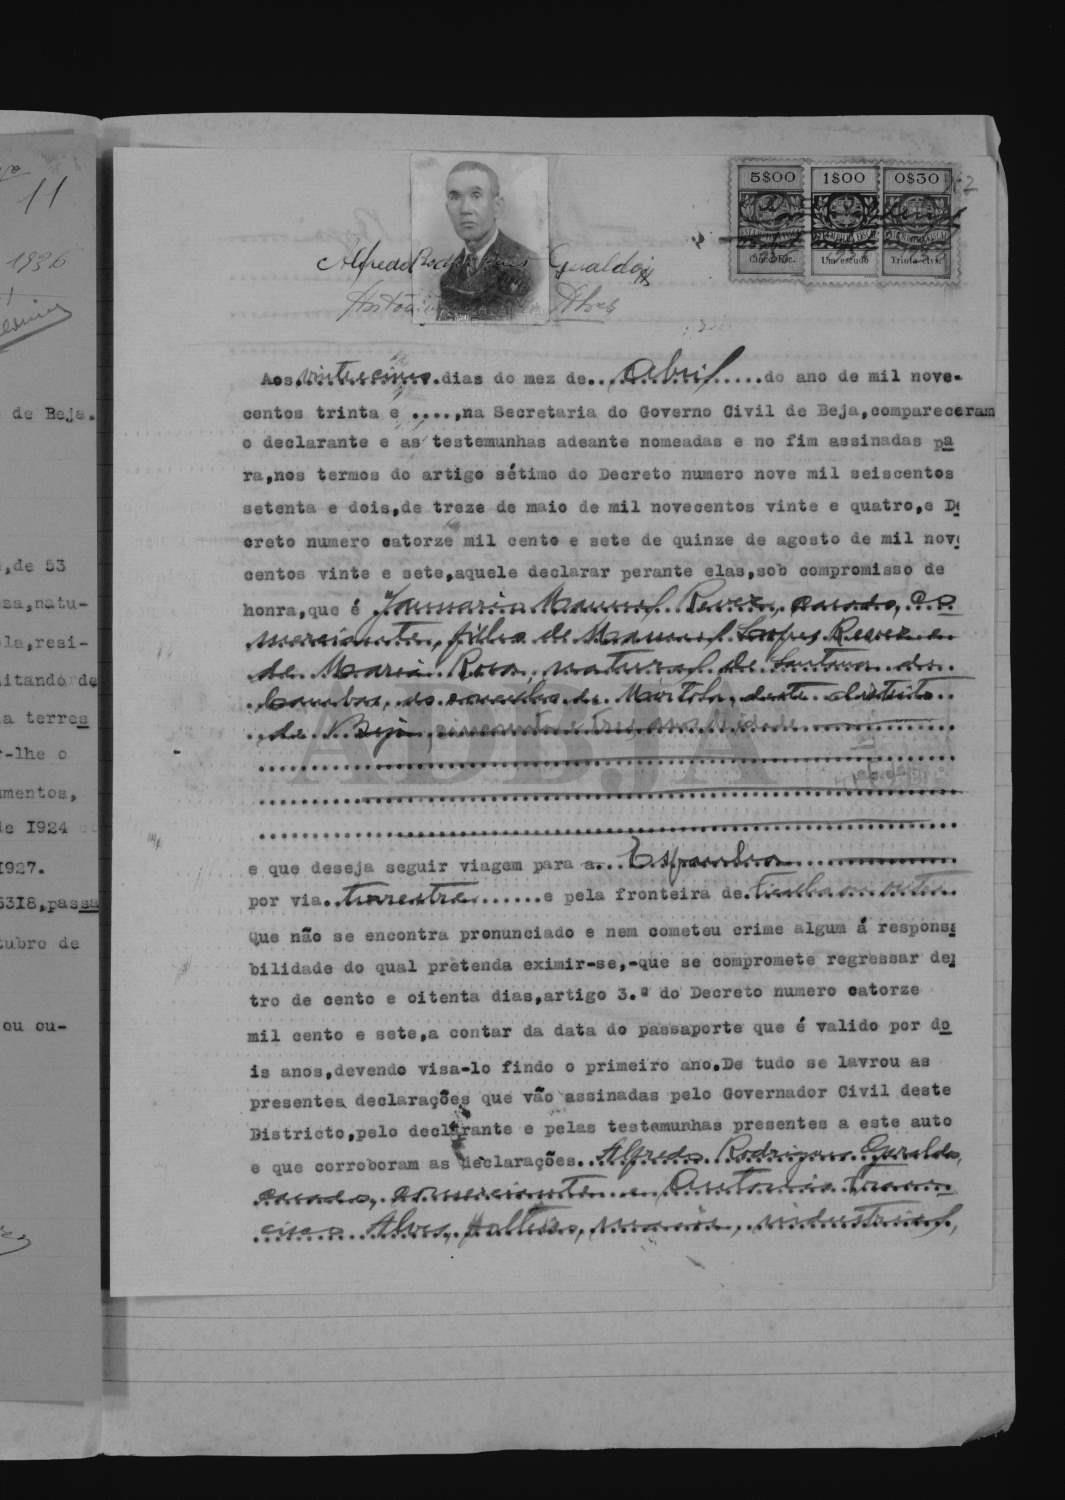 11
1936
de Beja.
,de 53
za,natu-
la,resi-
itando de
a terres
r-lhe o
umentos,
de 1924
1927.
6318,passa
tubro de
ou ou-
5$00 1$00 0$30
Um escudo
Alfredo Rodrigues Geraldo
António Alves
Aos vinte e cinco dias do mez de....Abril.....do ano de mil nove-
centos trinta e ....,na Secretaria do Governo Civil de Beja,compareceram
o declarante e as testemunhas adeante nomeadas e no fim assinadas pa
ra,nos termos do artigo sétimo do Decreto numero nove mil seiscentos
setenta e dois,de treze de maio de mil novecentos vinte e quatro,e De
creto numero catorze mil cento e sete de quinze de agosto de mil nove
centos vinte e sete,aquele declarar perante elas,sob compromisso de
honra,que é Januario Manuel Revez, casado, co
merciante, filho de Manuel Lopes Revez e
de Maria Rosa, natural de Santana de
Cambas, do concelho de Mértola, deste distrito
de Beja cincoenta e tres anos de edade
ADBJA
e que deseja seguir viagem para a...Espanha
por via..terrestre.......e pela fronteira de ou outra
Que não se encontra pronunciado e nem cometeu crime algum á responsa
bilidade do qual pretenda eximir-se,-que se compromete regressar den
tro de cento e oitenta dias,artigo 3.º do Decreto numero catorze
mil cento e sete,a contar da data do passaporte que é valido por do
is anos,devendo visa-lo findo o primeiro ano.De tudo se lavrou as
presentes declarações que vão assinadas pelo Governador Civil deste
Districto,pelo declarante e pelas testemunhas presentes a este auto
e que corroboram as declarações..Alfredo Rodrigues Geraldo,
casado, comerciante e Antonio Fran-
cisco Alves, solteiro, maior, industrial,